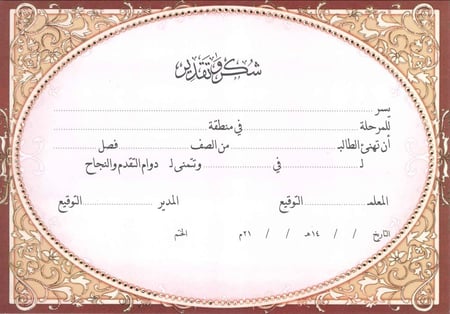 شكر وتقدير
يسر ........................
للمرحلة ........................ في منطقة ........................
أن تهنئ الطالبـ ........................ من الصف ........................ فصل ........................
لـ ........................ في ........................ وتتمنى لـ دوام التقدم والنجاح
المعلمـ ........................ التوقيع ........................ المدير ........................ التوقيع
التاريخ / / ١٤هـ / / ٢١م الختم